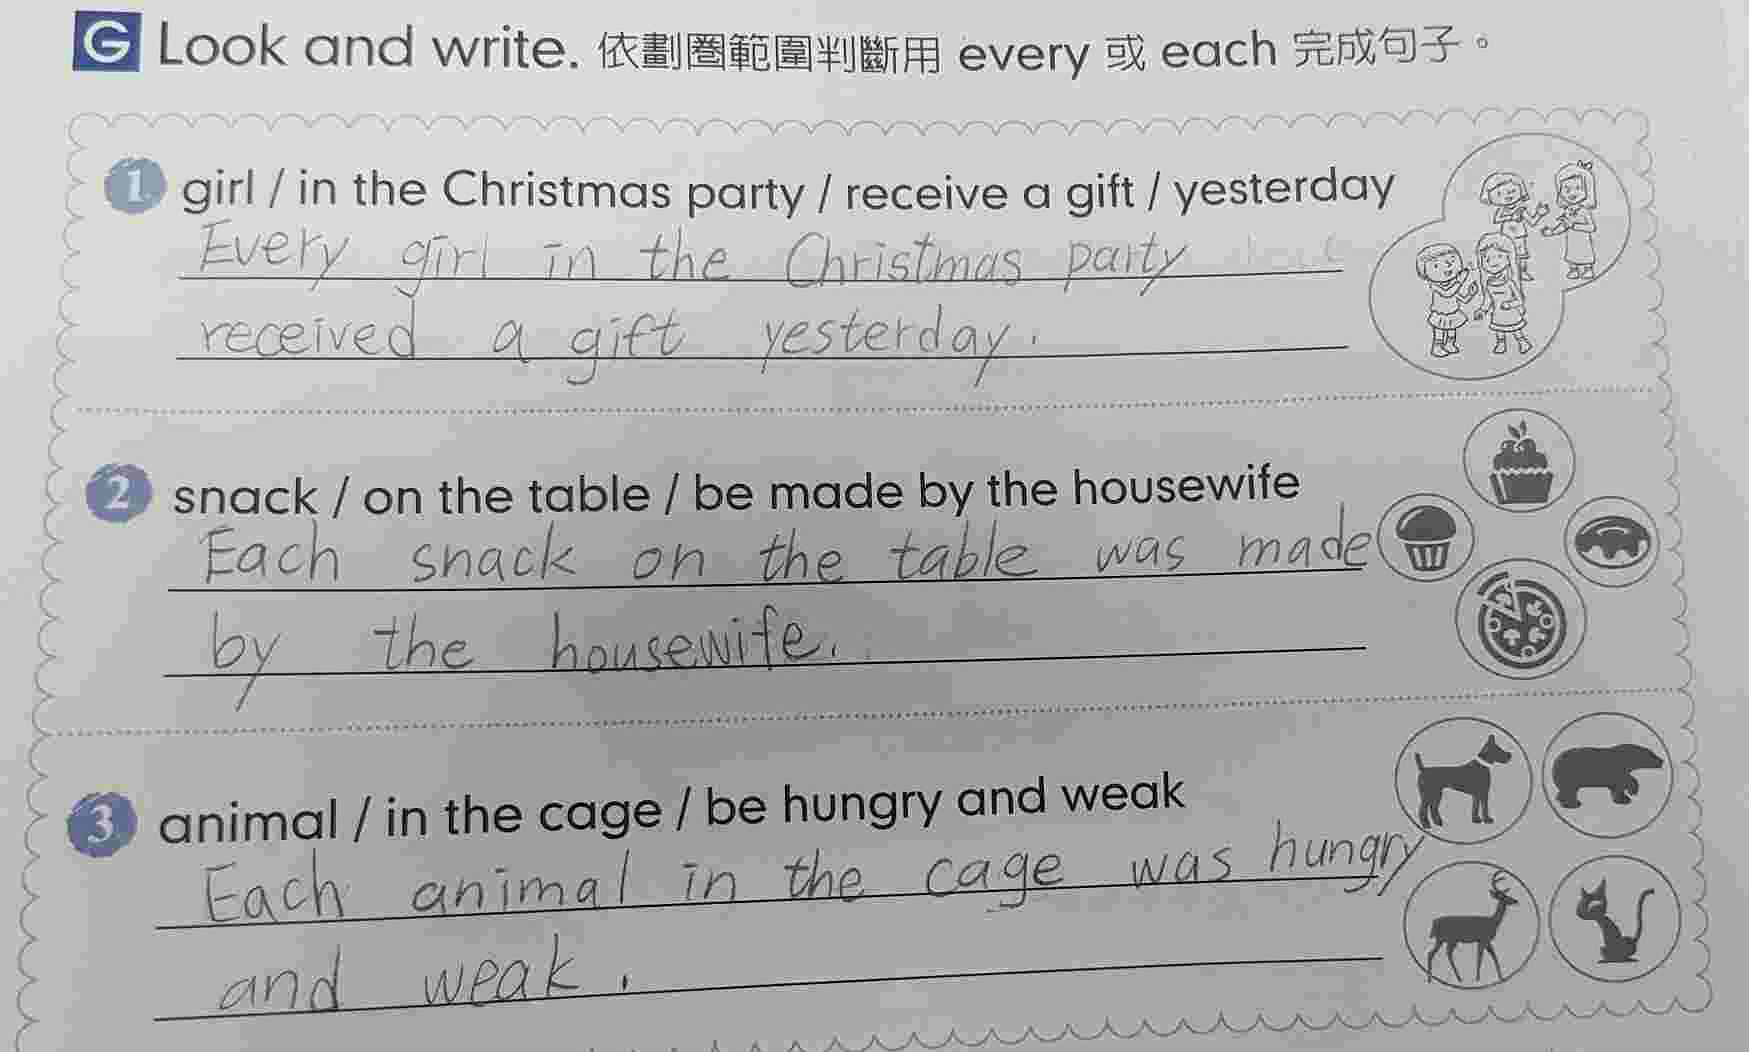 G Look and write. 依劃圈範圍判斷用 every 或 each 完成句子。
1 girl / in the Christmas party / receive a gift / yesterday
Every girl in the Christmas party
received a gift yesterday.
2 snack / on the table / be made by the housewife
Each snack on the table was made
by the housewife.
3 animal / in the cage / be hungry and weak
Each animal in the cage was hungry
and weak.